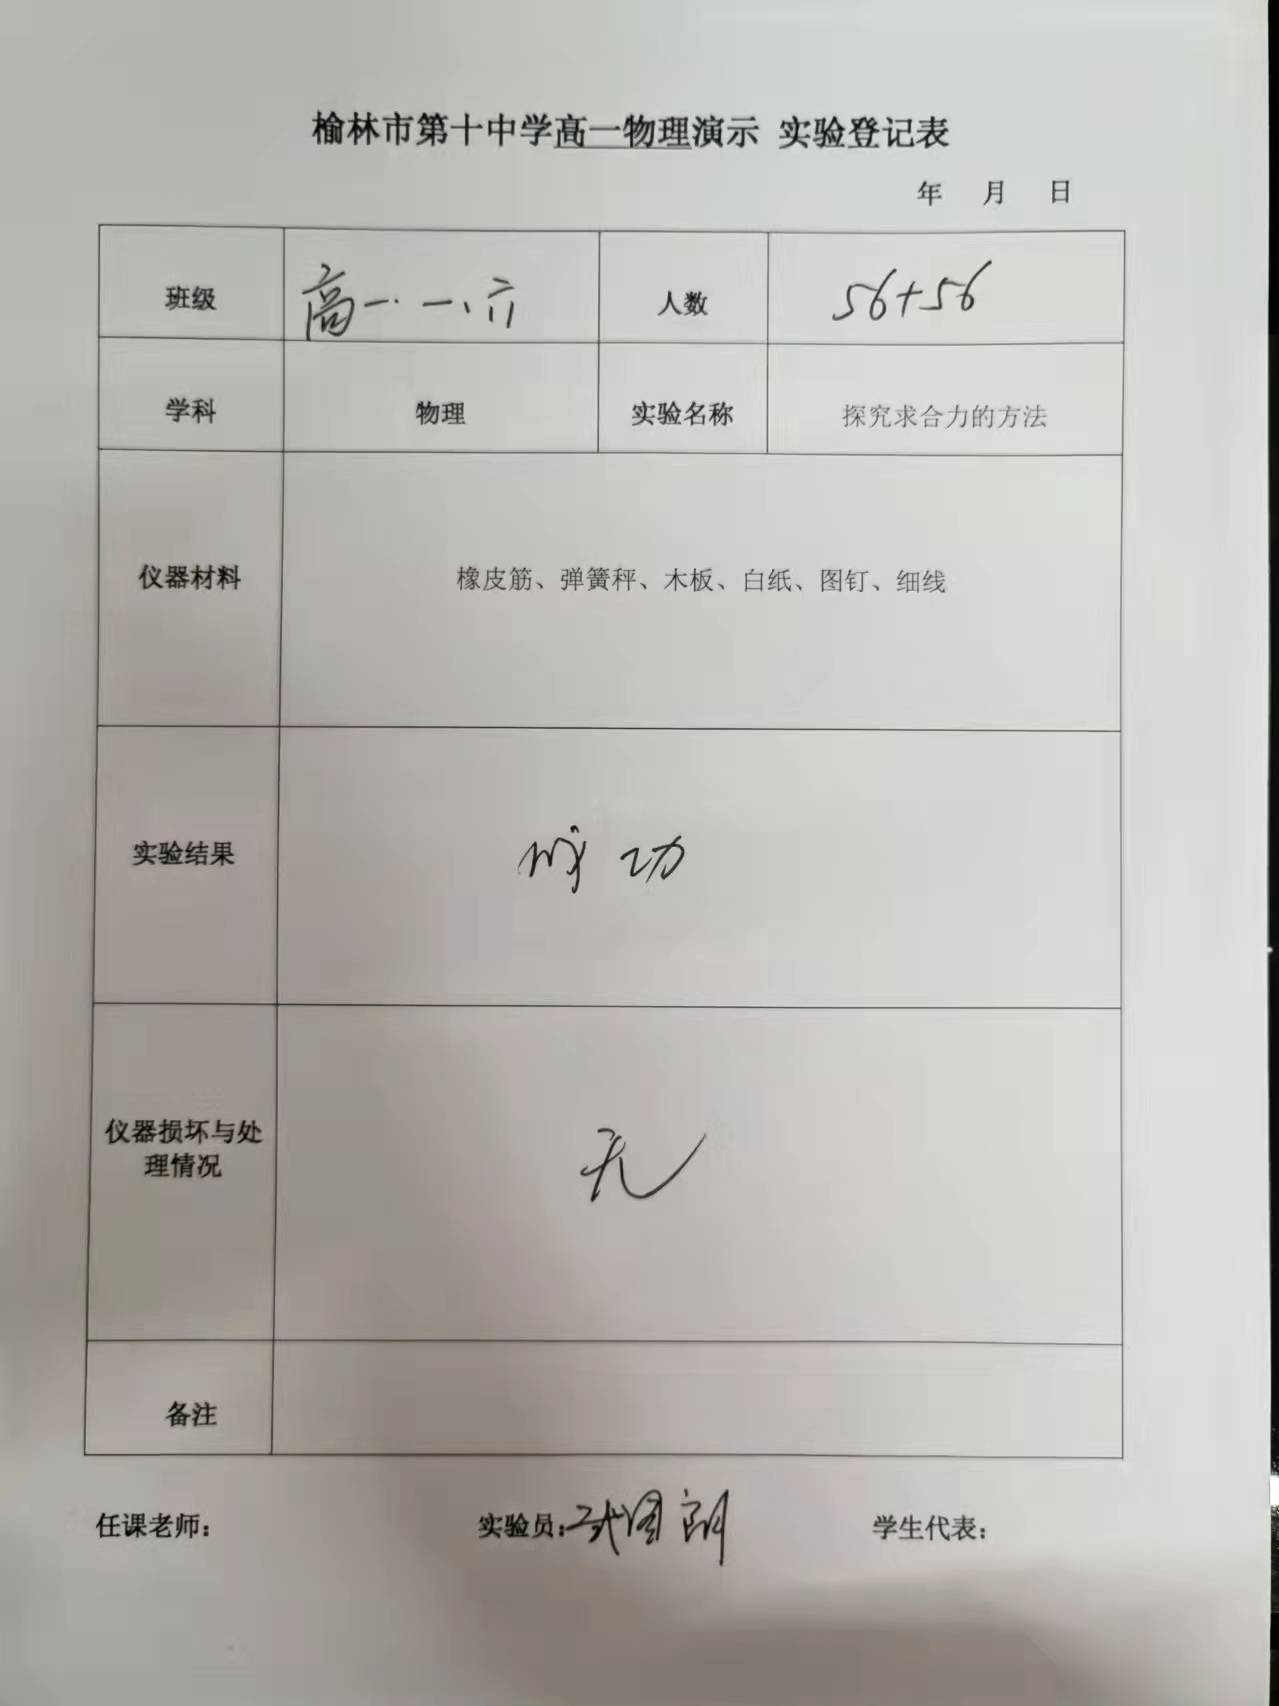 榆林市第十中学高一物理演示 实验登记表
年 月 日
班级 高一.一、六 人数 56+56
学科 物理 实验名称 探究求合力的方法
仪器材料 橡皮筋、弹簧秤、木板、白纸、图钉、细线
实验结果 成功
仪器损坏与处
理情况 无
备注
任课老师： 实验员：武 朗 学生代表：